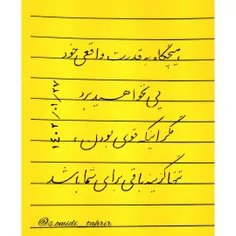 هیچگاه به قدرت واقعی خود
پی نخواهید برد
مگر اینکه قوی بودن ،
تنها گزینه باقی برای شما باشد
۱۴۰۲/۰۱/۲۷
@s.omidi_tahrir